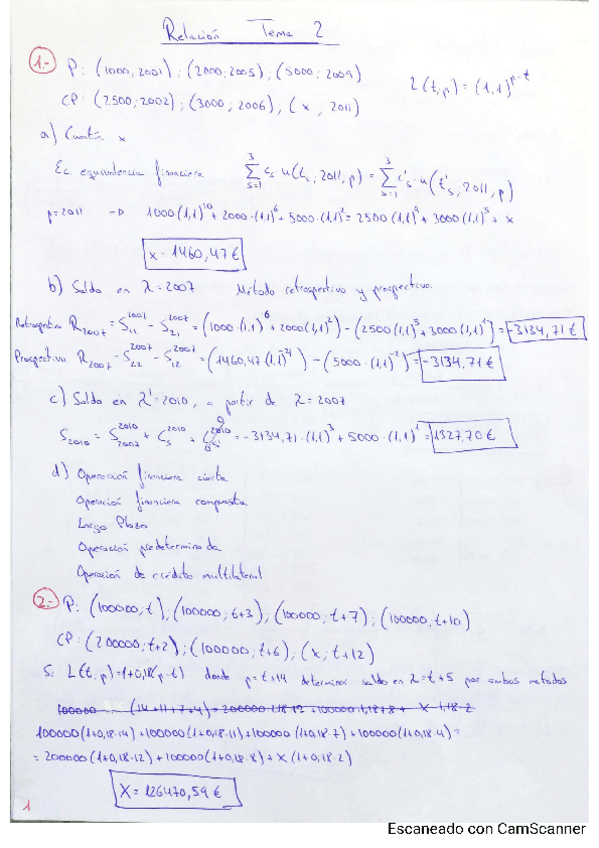 Relación Tema 2
1.- P: (1000, 2001) ; (2000; 2005) ; (5000; 2009)
L(t,p) = (1,1)^p-t
CP: (2500; 2002) ; (3000, 2006), (x, 2011)
a) Cuantía x
Ec. equivalencia financiera ∑ s=1 3 Cs · u(ts, 2011, p) = ∑ s=1 3 C's · u(t's, 2011, p)
p=2011 → 1000(1,1)^10 + 2000·(1,1)^6 + 5000·(1,1)^2 = 2500(1,1)^9 + 3000(1,1)^5 + x
x = 1460,47 €
b) Saldo en λ=2007 Método retrospectivo y prospectivo.
Retrospectivo R2007 = S11^2007 - S21^2007 = (1000·(1,1)^6 + 2000(1,1)^2) - (2500(1,1)^5 + 3000(1,1)^1) = -3134,71 €
Prospectivo R2007 = S22^2007 - S12^2007 = (1460,47(1,1)^-4) - (5000·(1,1)^-2) = -3134,71 €
c) Saldo en λ'=2010, a partir de λ=2007
S2010 = S2007^2010 + Cs^2010 + = -3134,71·(1,1)^3 + 5000·(1,1)^1 = 1327,70 €
d) Operación financiera cierta
Operación financiera compuesta
Largo Plazo
Operación predeterminada
Operación de crédito multilateral
2.- P: (100000; t), (100000; t+3); (100000; t+7); (100000, t+10)
CP: (200000; t+2); (100000; t+6); (x; t+12)
Si L(t,p)=1+0,18(p-t) donde p=t+14 determinar saldo en λ=t+5 por ambos métodos
100000 (14+11+7+4) = 200000·1,18·12 + 100000·1,18+8 + X·1,18·2
100000(1+0,18·14) + 100000(1+0,18·11) + 100000(1+0,18·7) + 100000(1+0,18·4) =
= 200000(1+0,18·12) + 100000(1+0,18·8) + X(1+0,18·2)
X = 126470,59 €
1
Escaneado con CamScanner